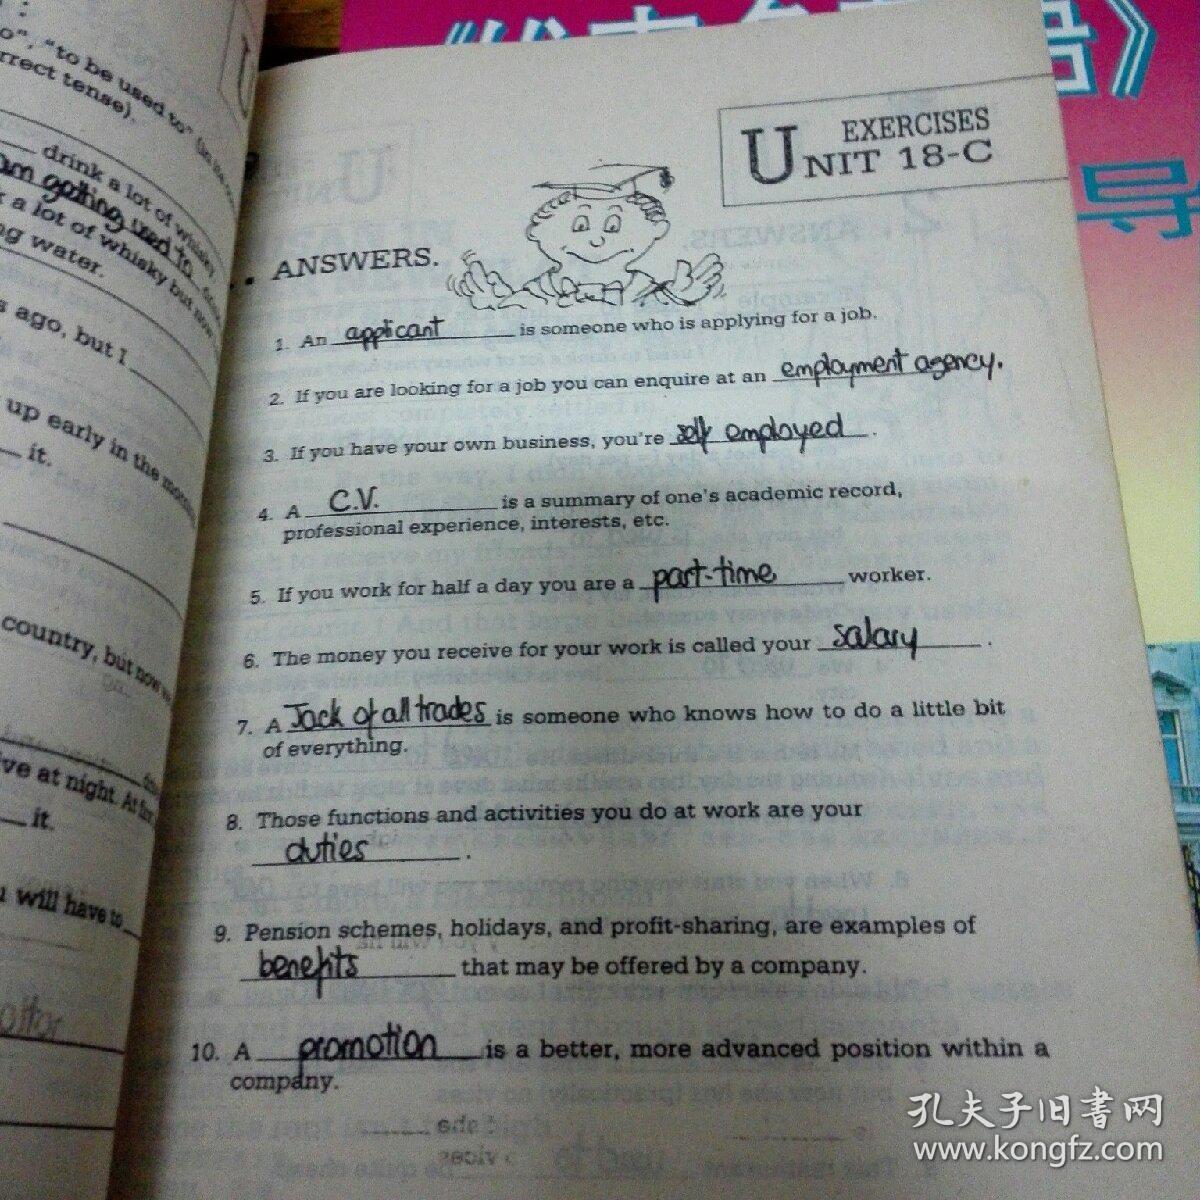 o", "to be used to" (in the
rrect tense).
drink a lot of whisky
am getting used to
a lot of whisky but now
ng water.
s ago, but I
up early in the morning
it.
country, but now
ve at night. At first,
it.
u will have to
EXERCISES
UNIT 18-C
ANSWERS.
1. An applicant is someone who is applying for a job.
2. If you are looking for a job you can enquire at an employment agency.
3. If you have your own business, you're self employed.
4. A C.V. is a summary of one's academic record,
professional experience, interests, etc.
5. If you work for half a day you are a part-time worker.
6. The money you receive for your work is called your salary.
7. A Jack of all trades is someone who knows how to do a little bit
of everything.
8. Those functions and activities you do at work are your
duties.
9. Pension schemes, holidays, and profit-sharing, are examples of
benefits that may be offered by a company.
10. A promotion is a better, more advanced position within a
company.
导
孔夫子旧书网
www.kongfz.com